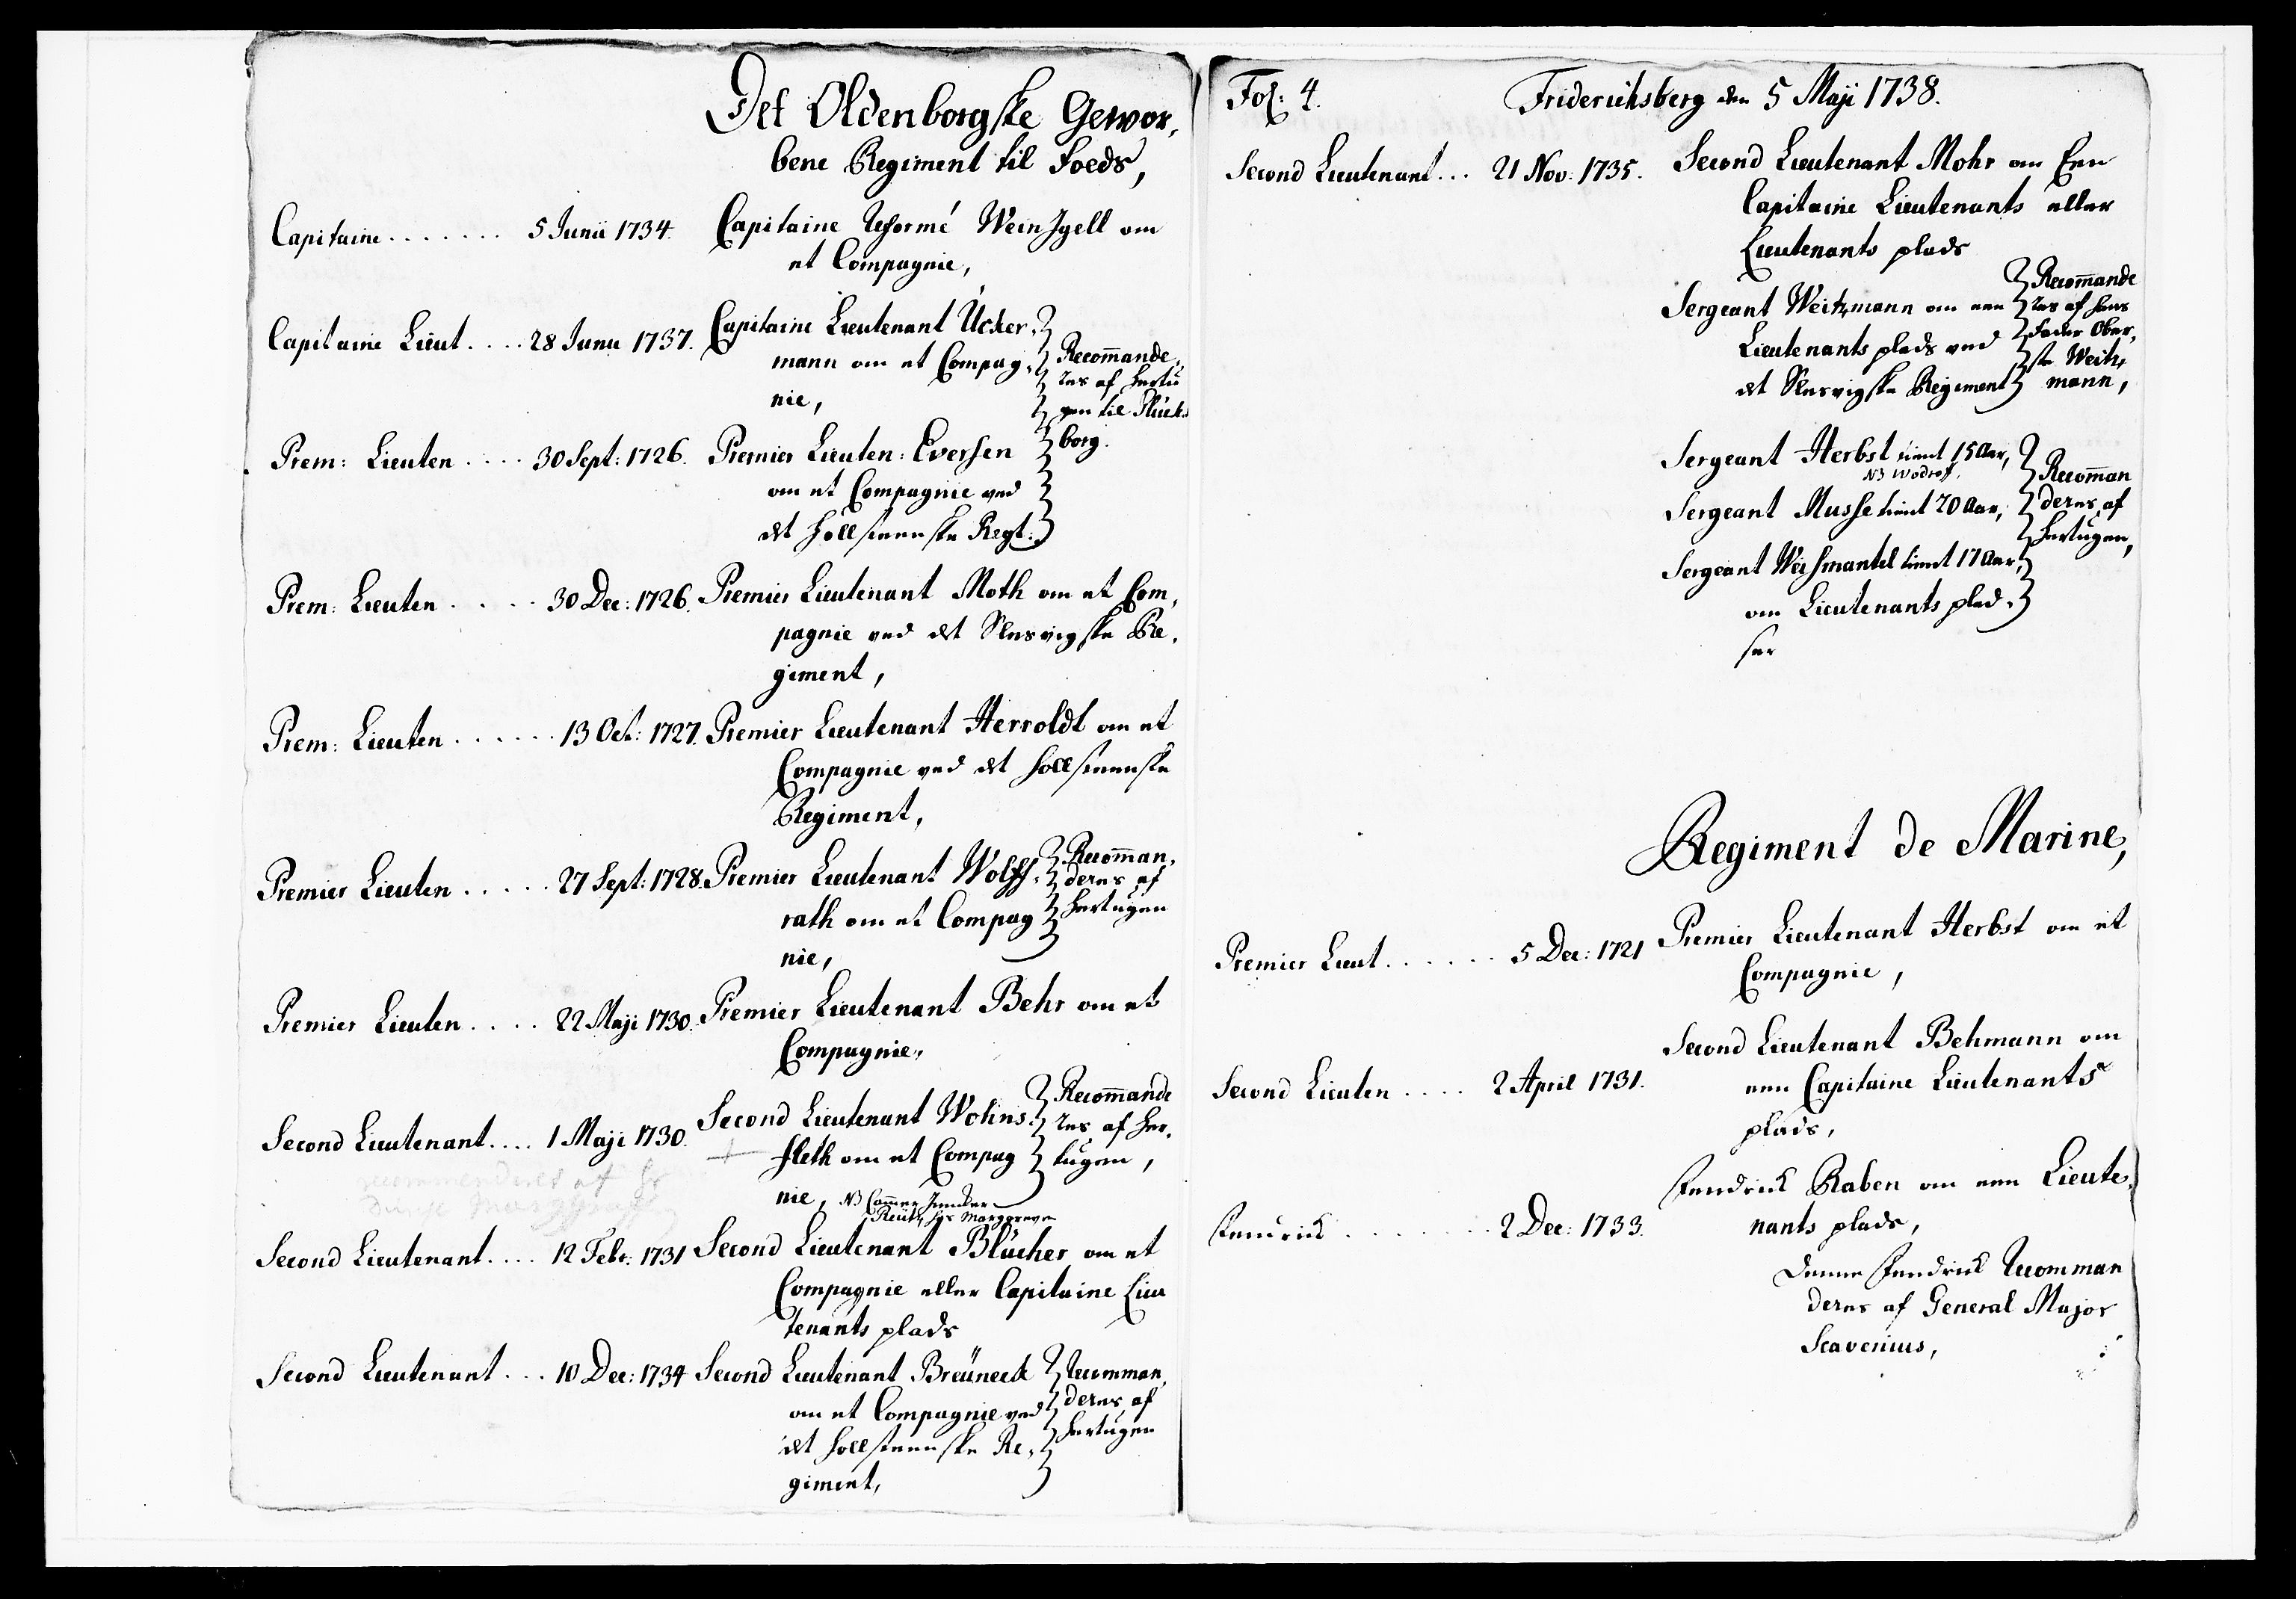 Det Oldenborgske Gewor,
bene Regiment til Foeds,
Capitaine ....... 5 Junii 1734. Capitaine Reformé Wein Jgell om
et Compagnie,
Capitaine Lieut .... 28 Junii 1737. Capitaine Lieutenant Ücker,
mann om et Compag,
nie,
Recom̄ande,
res af Hertu
gen til Glücks
borg.
Prem: Lieuten .... 30 Sept: 1726. Premier Lieuten: Eversen
om et Compagnie ved
det Hollsteenske Regt:
Prem: Lieuten ..... 30 Dec: 1726. Premier Lieutenant Moth om et Com,
pagnie ved det Slesvigske Re,
giment,
Prem: Lieuten ...... 13 Oct: 1727. Premier Lieutenant Herroldt om et
Compagnie ved det Hollsteenske
Regiment,
Premier Lieuten ..... 27 Sept: 1728. Premier Lieutenant Wolff,
rath om et Compag
nie,
Recom̄an,
deres af
Hertugen
Premier Lieuten .... 22 Maji 1730. Premier Lieutenant Behr om et
Compagnie,
Second Lieutenant .... 1 Maji 1730. Second Lieutenant Wohns,
fleth om et Compag
nie,
Recom̄ande
res af Her,
tugen,
recommenderes af
NB Cammer Juncker
Reütz hos Marggreven
Second Lieutenant .... 12 Febr: 1731 Second Lieutenant Blücher om et
Compagnie eller Capitaine Lieu
tenants plads
Second Lieutenant ... 10 Dec: 1734 Second Lieutenant Breüneck
om et Compagnie ved
det Hollsteenske Re,
giment,
Recomman,
deres af
Hertugen
Fol: 4. Friderichsberg den 5 Maji 1738.
Second Lieutenant ... 21 Nov: 1735. Second Lieutenant Mohr om Een
Capitaine Lieutenants eller
Lieutenants plads
Sergeant Weitzmann om een
Lieutenants plads ved
det Slesvigske Regiment
Recom̄ande
res af hans
Fader Ober,
ste Weitz,
mann,
Sergeant Herbst tient 15 Aar,
NB Wodrof
Sergeant Musse tient 20 Aar,
Sergeant Weismantel tient 17 Aar,
om Lieutenants plad,
ser
Recom̄an
deres af
Hertugen,
Regiment de Marine,
Premier Lieut ...... 5 Dec: 1721 Premier Lieutenant Herbst om et
Compagnie,
Second Lieuten .... 2 April 1731. Second Lieutenant Behmann om
een Capitaine Lieutenants
plads,
Fendrick ....... 2 Dec: 1733. Fendrick Raben om een Lieute,
nants plads,
Denne Fendrick Recomman
deres af General Major
Scavenius,